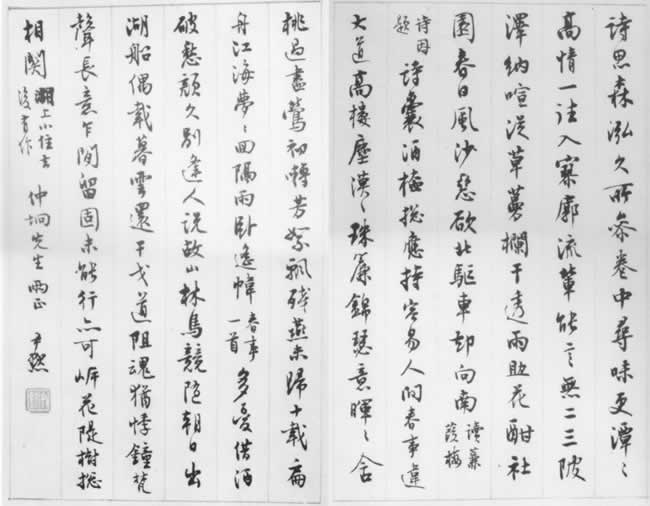 詩思森泓久所叅卷中尋味更潭〻
高情一注入寥廓流輩能言無二三陂
澤納喧從草蔓欄干透雨匝花酣社
園春日風沙惡欲北驅車却向南 讀蒹葭樓
詩因題 詩囊酒榼總應持容易人間春事違
大道高樓塵漠〻珠簾錦瑟意暉〻舍
桃過盡鶯初囀芳絮飄殘燕未歸十載扁
舟江海夢〻回隔雨卧遙幃 春事一首 多憂借酒
破愁顏久別逢人說故山林鳥競隨朝日出
湖船偶載暮雲還干戈道阻魂猶悸鐘梵
聲長意乍閒留固未能行亦可岍花隄樹總
相関 湖上小住去後有作 仲坰先生兩正 尹默